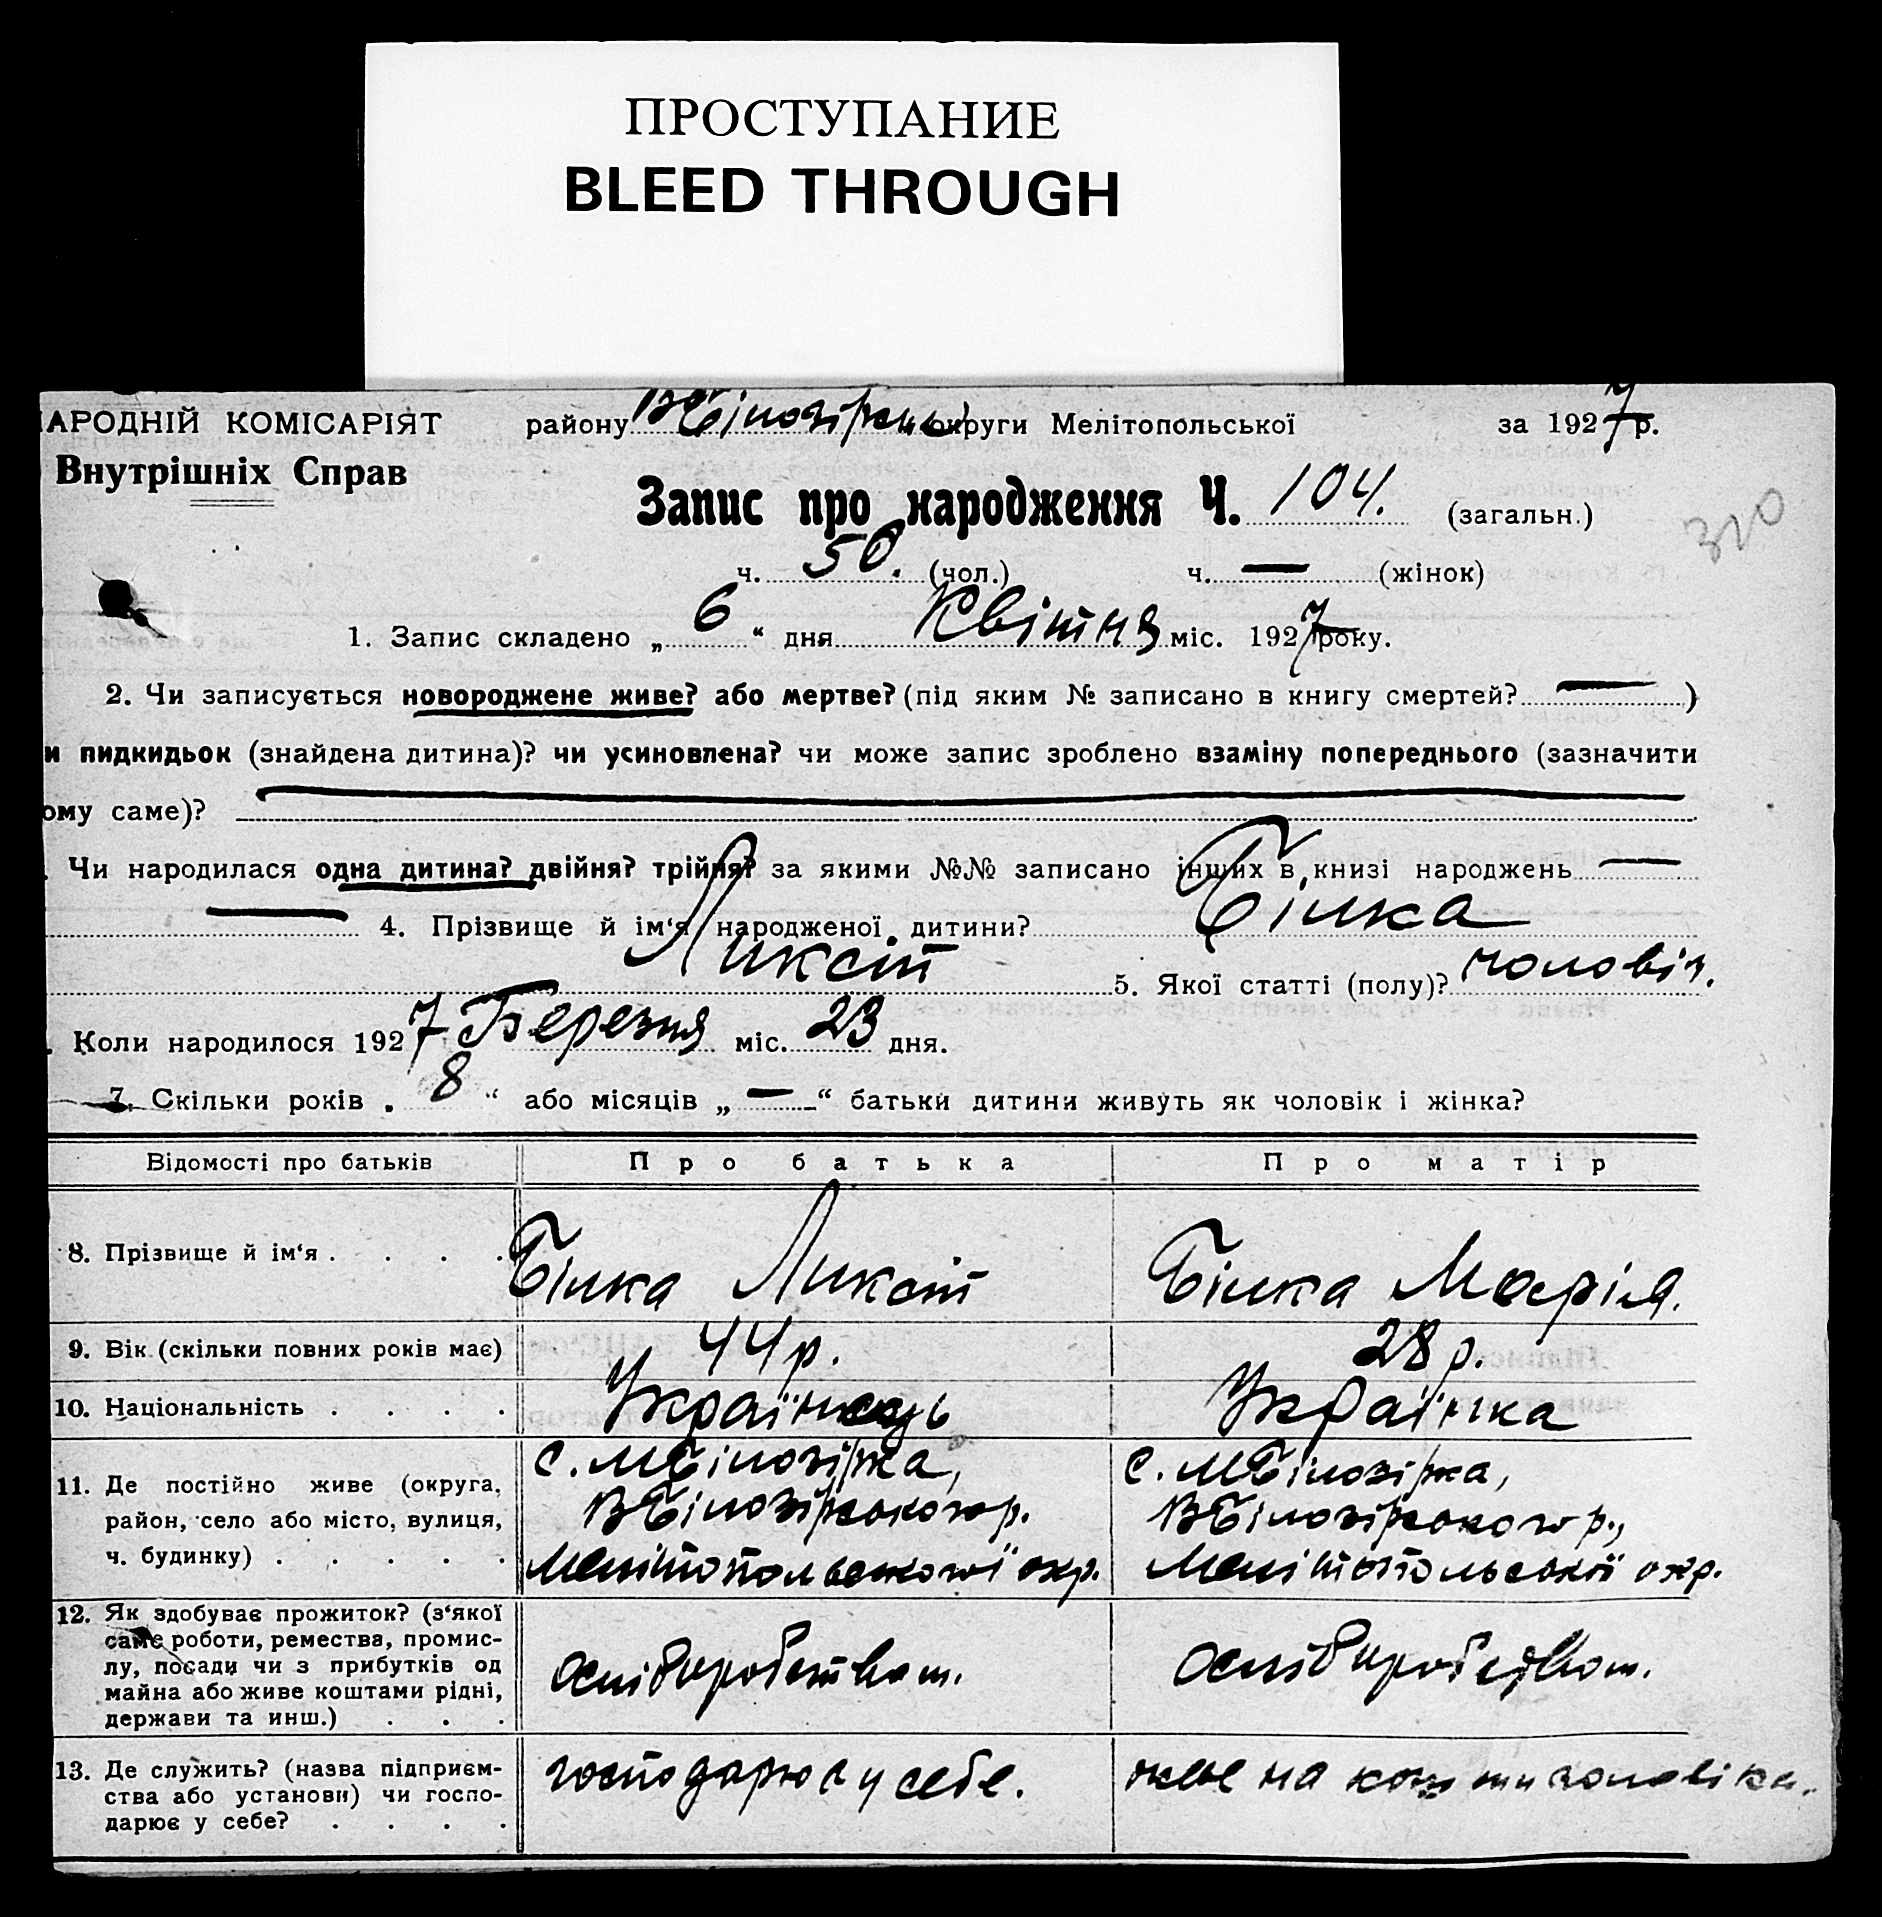 ПРОСТУПАНИЕ
BLEED THROUGH
НАРОДНІЙ КОМІСАРІЯТ району ВБілозірськ округи Мелітопольської за 1927 р.
Внутрішніх Справ
Запис про народження Ч. 104. (загальн.)
310
ч. 50. (чол.) ч. — (жінок)
1. Запис складено „ 6 “ дня Квітня міс. 1927 року.
2. Чи записується новороджене живе? або мертве? (під яким № записано в книгу смертей? — )
и пидкидьок (знайдена дитина)? чи усиновлена? чи може запис зроблено взаміну попереднього (зазначити
ому саме)?
. Чи народилася одна дитина? двійня? трійня? за якими №№ записано інших в книзі народжень —
— 4. Прізвище й ім‘я народженої дитини? Білка
Ликсій 5. Якої статті (полу)? чоловіч.
. Коли народилося 1927 Березня міс. 23 дня.
7. Скільки років „ 8 “ або місяців „ — “ батьки дитини живуть як чоловік і жінка?
Відомості про батьків Про батька Про матір
8. Прізвище й ім‘я . . . . Білка Ликсій Білка Марія.
9. Вік (скільки повних років має) 44 р. 28 р.
10. Національність . . . . Українець Українка
11. Де постійно живе (округа, с. МБілозірка, с. МБілозірка,
район, село або місто, вулиця, ВБілозірського р. ВБілозірського р.,
ч. будинку) . . . . . Мелітопольської окр. Мелітопольської окр.
12. Як здобуває прожиток? (з‘якої
саме роботи, ремества, промис-
лу, посади чи з прибутків од хліборобством. хліборобством.
майна або живе коштами рідні,
держави та инш.) . . .
13. Де служить? (назва підприєм- господарює у себе. живе на кошти чоловіка.
ства або установи) чи госпо-
дарює у себе? . . . .